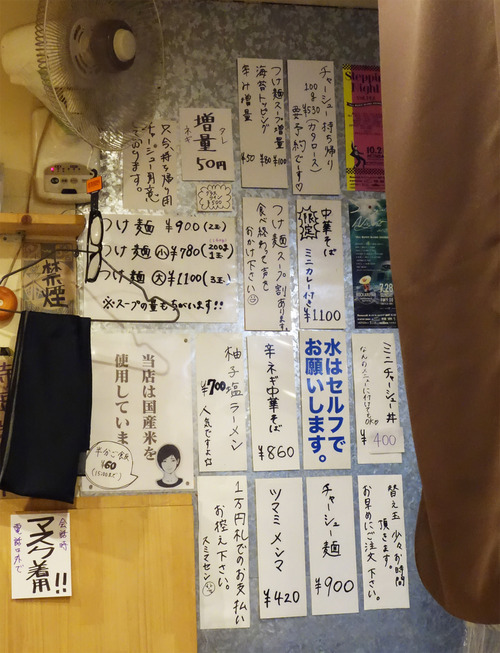 チャーシュー持ち帰り
100g ¥530 (カタロース)
要予約でーす♡
つけ麺スープ増量 ¥100
海苔トッピング ¥80
辛み増量 ¥50
タレ
増量
ネギ
50円
チャーシュー用意
てあります。
Stepping
Fight
10.2
つけ麺 ¥900(2玉)
つけ麺 小 ¥780(200g 1玉)
つけ麺 大 ¥1100(3玉)
※スープの量もちがいます!!
つけ麺スープ割あります。
食べ終わって声を
おかけ下さい
中華そば
ミニカレー付き
¥1100
2.28
禁煙
当店は国産米を
使用していま
半分ごはん
¥60
(15:00まで)
柚子塩ラーメン
¥700
人気ですよ
辛ネギ中華そば
¥860
水はセルフで
お願いします。
ミニチャーシュー丼
なんのメニューに付けてもOK
¥400
1万円札でのお支払い
お控え下さい。
スミマセン
ツマミメンマ
¥420
チャーシュー麺
¥900
替え玉 少々お時間
頂きます。
お早めにご注文下さい。
会話時
マスク着用!!
電話は外で